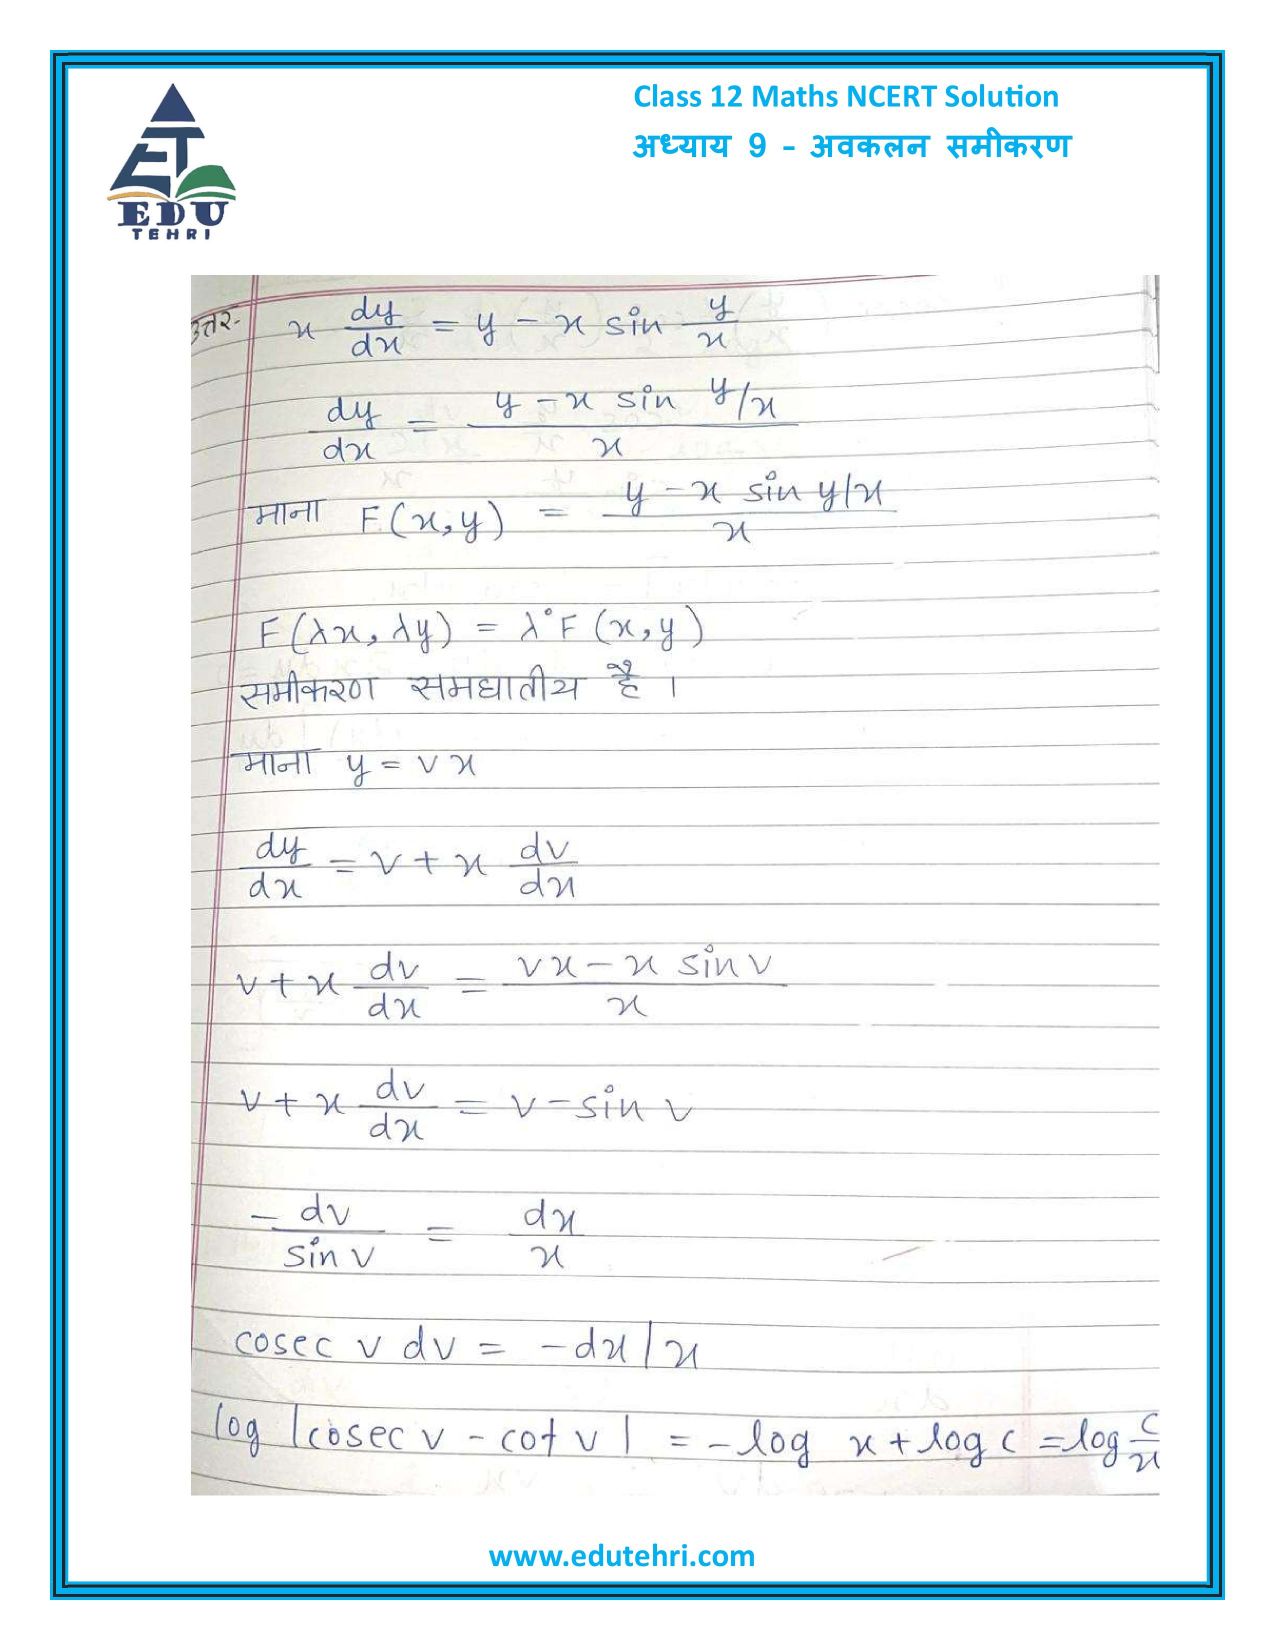 Class 12 Maths NCERT Solution
अध्याय 9 - अवकलन समीकरण
EDU
TEHRI
उत्तर- x dy/dx = y - x sin y/x
dy/dx = (y - x sin y/x)/x
माना F(x,y) = (y - x sin y/x)/x
F(λx, λy) = λ°F(x,y)
समीकरण समघातीय है।
माना y = vx
dy/dx = v + x dv/dx
v + x dv/dx = (vx - x sin v)/x
v + x dv/dx = v - sin v
- dv/sin v = dx/x
cosec v dv = -dx/x
log |cosec v - cot v| = -log x + log c = log c/x
www.edutehri.com